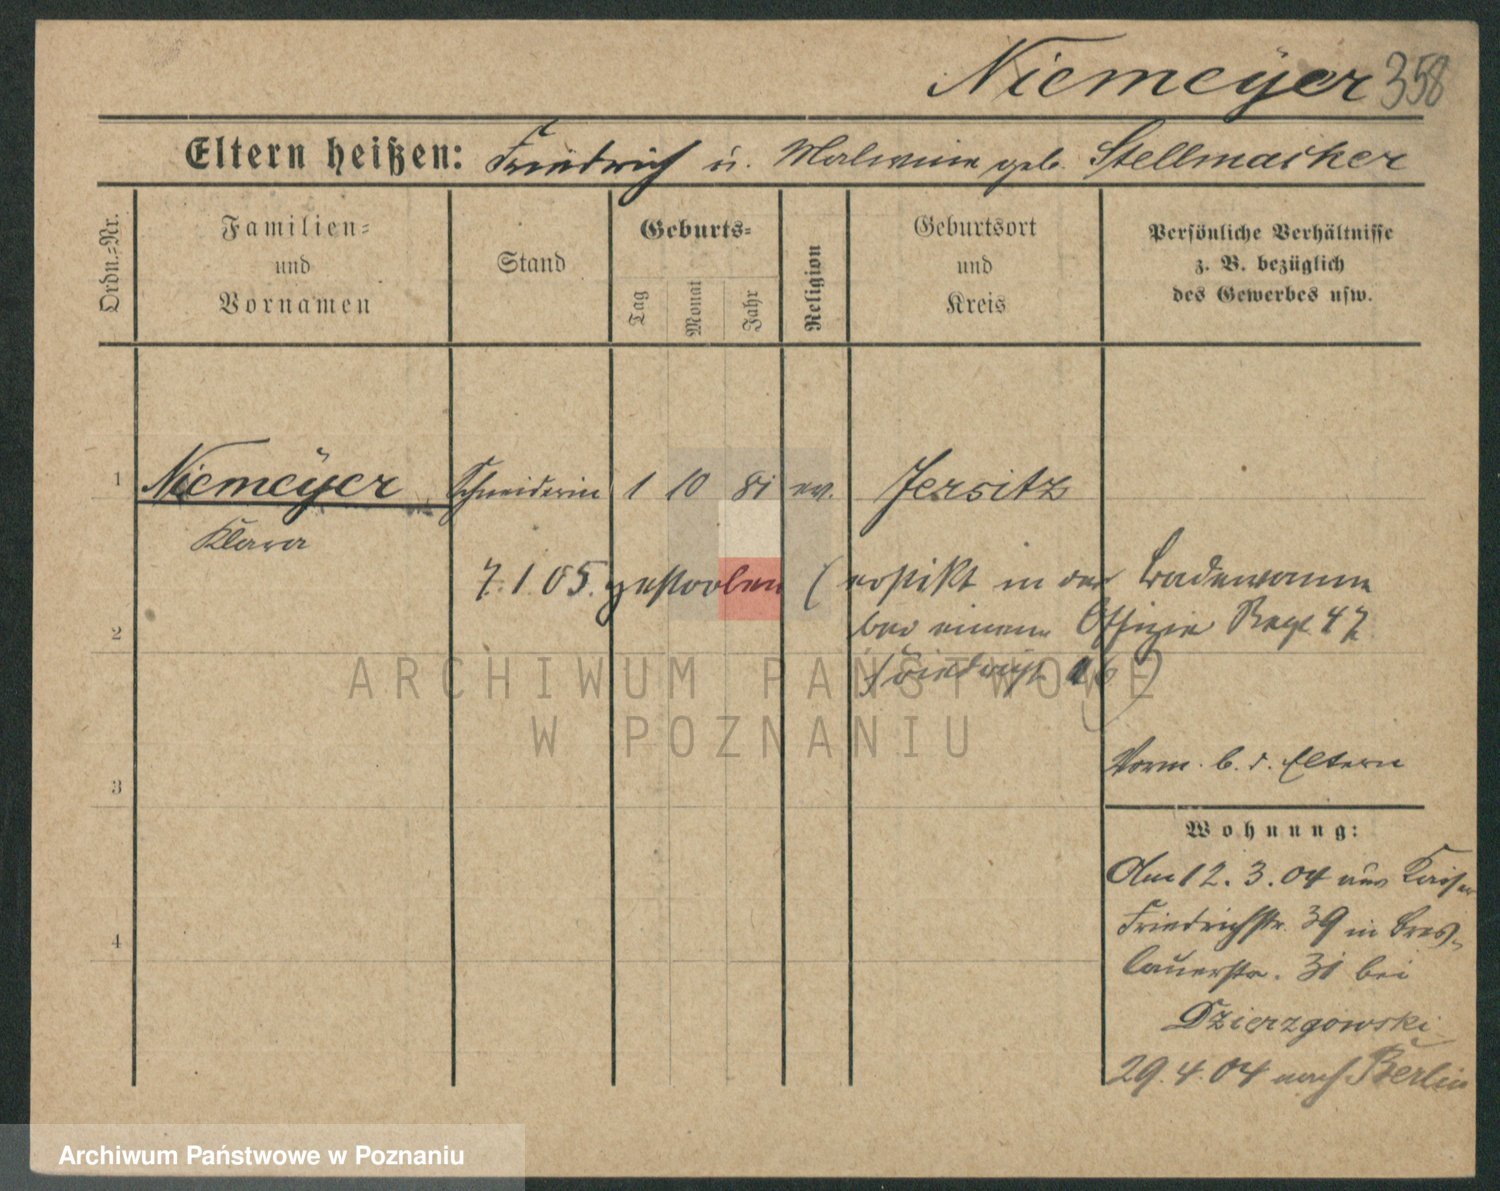 Niemeÿer 358
Eltern heißen: Friedrich u. Malwine geb. Stellmacher
Ordn.-Nr.
Familien-
und
Vornamen
Stand
Geburts-
Tag
Monat
Jahr
Religion
Geburtsort
und
Kreis
Persönliche Verhältnisse
z. B. bezüglich
des Gewerbes usw.
1 Niemeÿer Schneiderin 1 10 81 ev. Jersitz
Klara
7.1.05. gestorben (erstikt in der Badewanne
2 bei einem Offizier Regt 47
16)
ARCHIWUM PAŃSTWOWE
W POZNANIU
Vorm. b. d. Eltern
3
Wohnung:
Am 12.3.04 aus Kaiser
Friedrichstr. 39 in Bres-
4
lauerstr. 31 bei
Dzierzgowski
29.4.04 nach Berlin
Archiwum Państwowe w Poznaniu